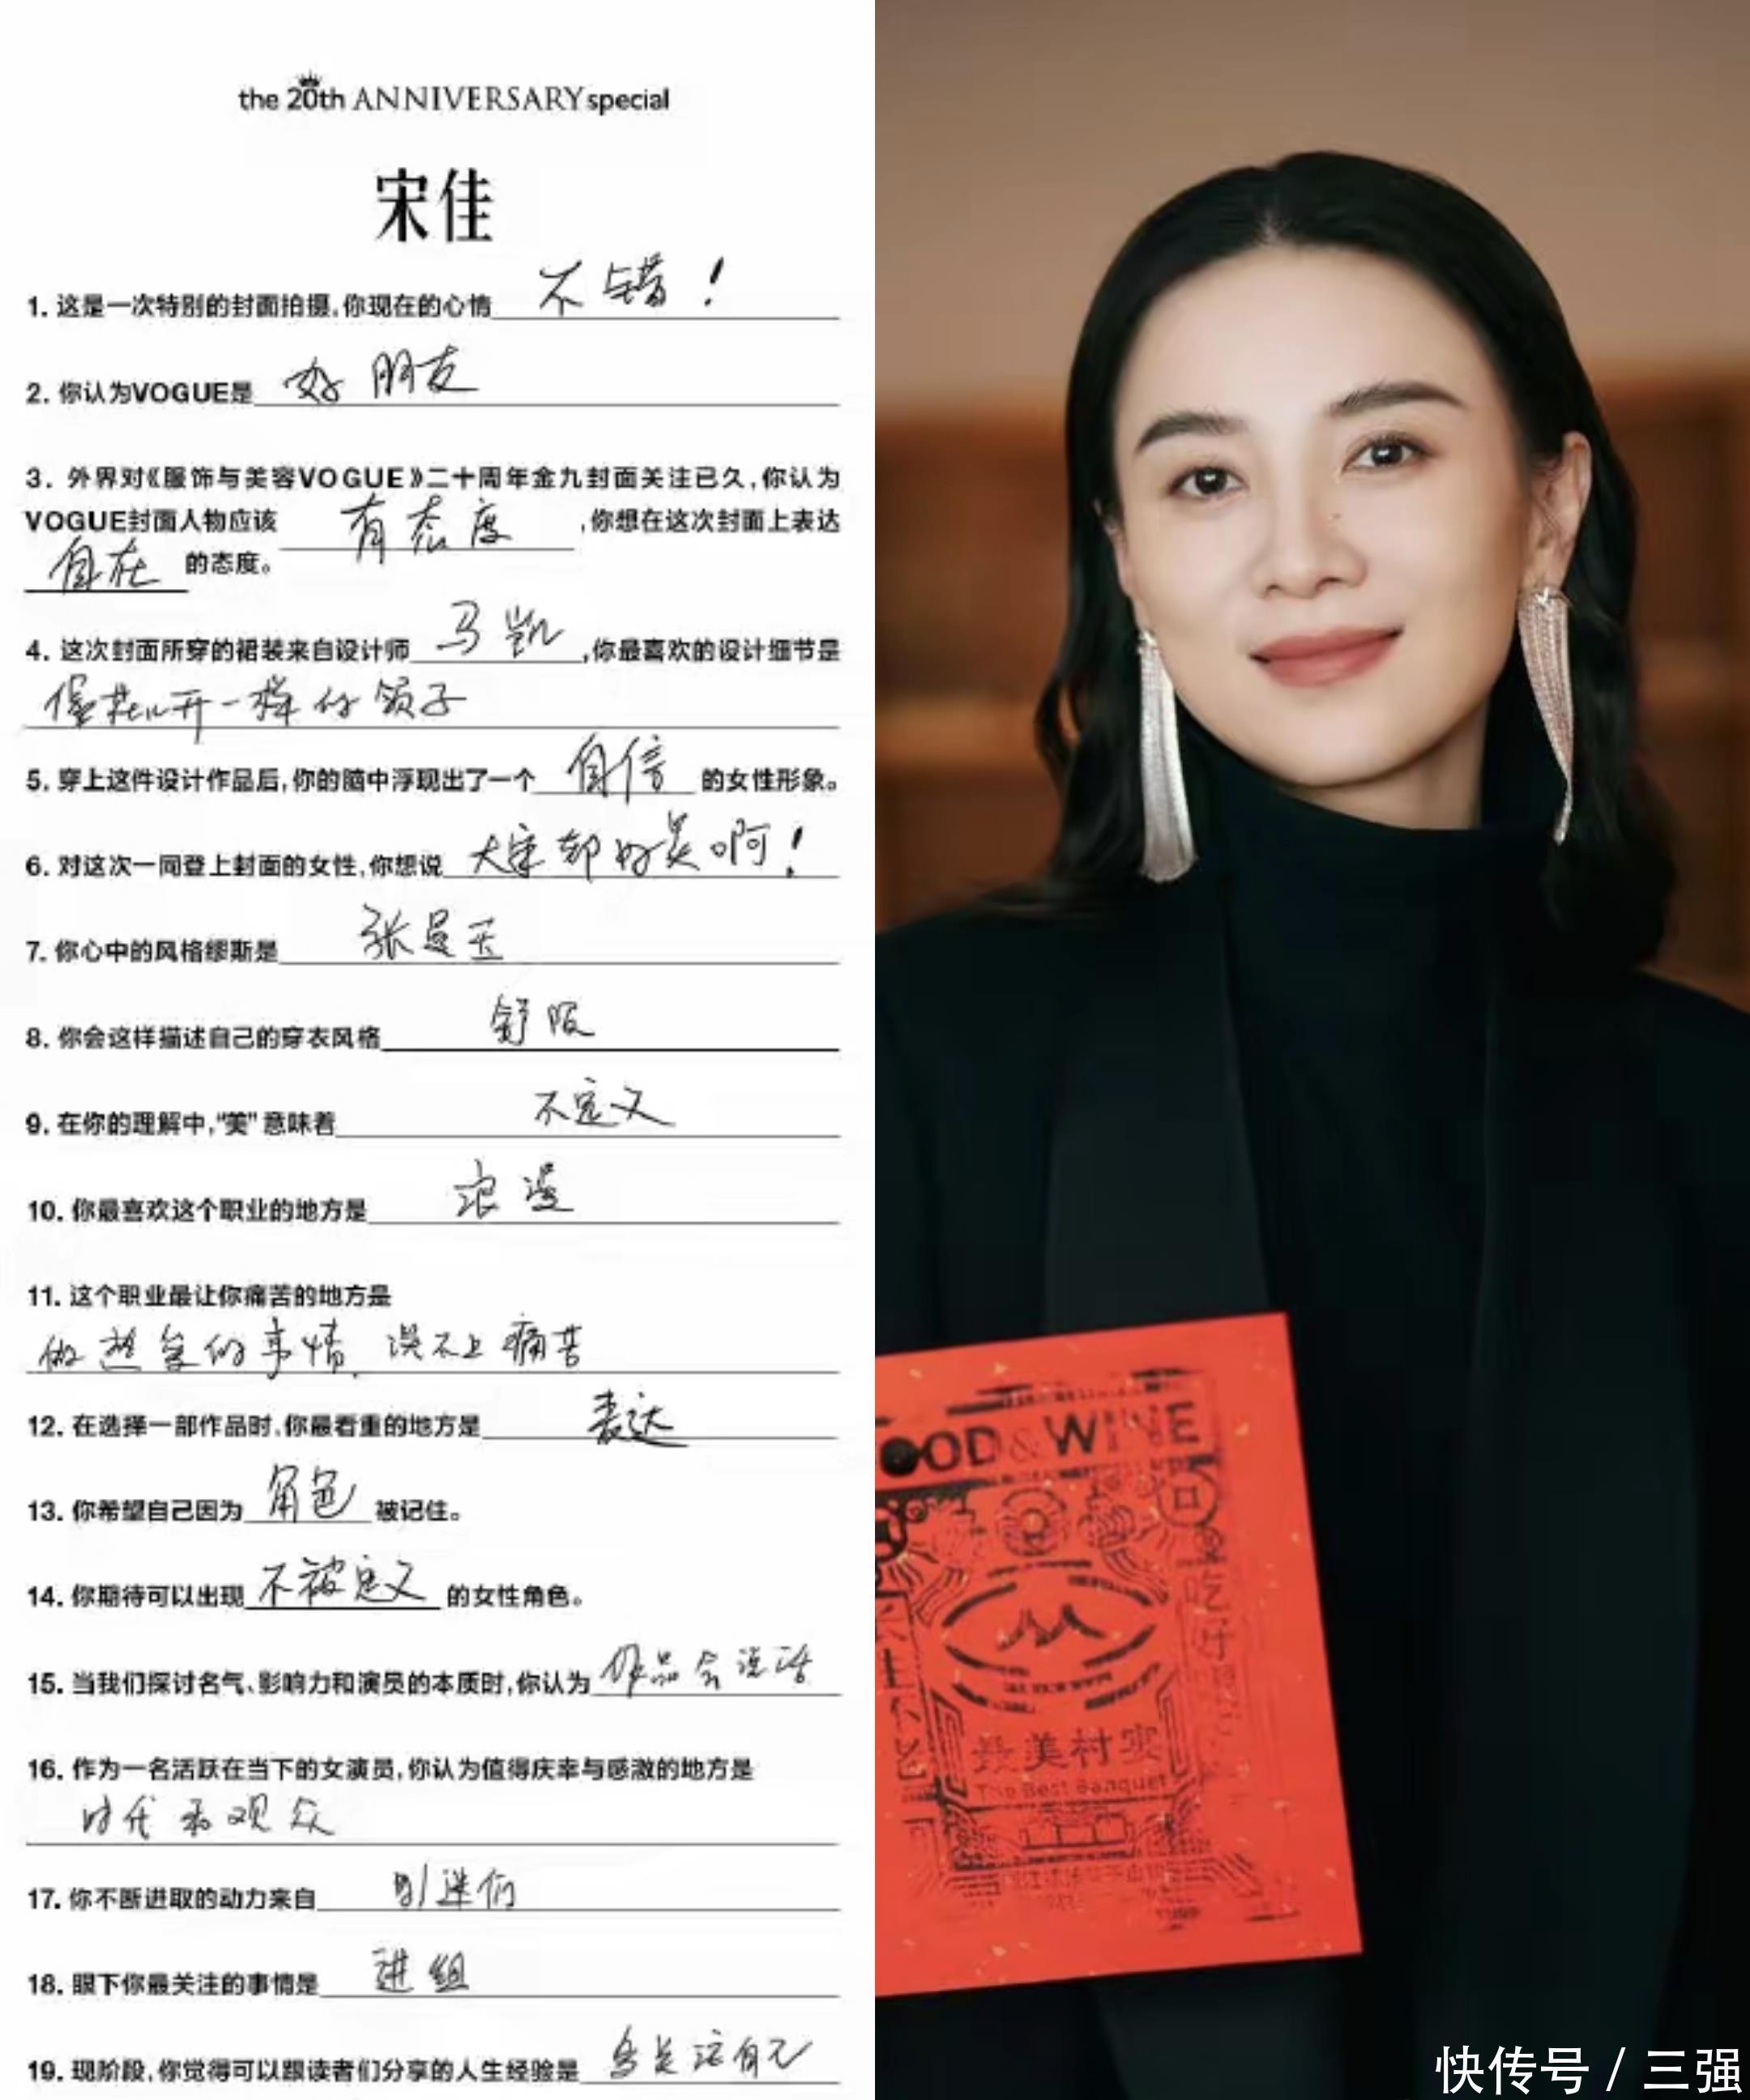 the 20th ANNIVERSARY special
宋佳
1. 这是一次特别的封面拍摄，你现在的心情 不错！
2. 你认为VOGUE是 好朋友
3. 外界对《服饰与美容VOGUE》二十周年金九封面关注已久，你认为
VOGUE封面人物应该 有态度 ，你想在这次封面上表达
自在 的态度。
4. 这次封面所穿的裙装来自设计师 马凯 ，你最喜欢的设计细节是
像花儿开一样的领子
5. 穿上这件设计作品后，你的脑中浮现出了一个 自信 的女性形象。
6. 对这次一同登上封面的女性，你想说 大家都好美啊！
7. 你心中的风格缪斯是 张曼玉
8. 你会这样描述自己的穿衣风格 舒服
9. 在你的理解中，“美”意味着 不定义
10. 你最喜欢这个职业的地方是 浪漫
11. 这个职业最让你痛苦的地方是
做热爱的事情，谈不上痛苦
12. 在选择一部作品时，你最看重的地方是 表达
13. 你希望自己因为 角色 被记住。
14. 你期待可以出现 不被定义 的女性角色。
15. 当我们探讨名气、影响力和演员的本质时，你认为 作品会说话
16. 作为一名活跃在当下的女演员，你认为值得庆幸与感激的地方是
时代和观众
17. 你不断进取的动力来自 影迷们
18. 眼下你最关注的事情是 进组
19. 现阶段，你觉得可以跟读者们分享的人生经验是 多关注自己
FOOD & WINE
吃好
最美村宴
The Best Banquet
快传号 / 三强